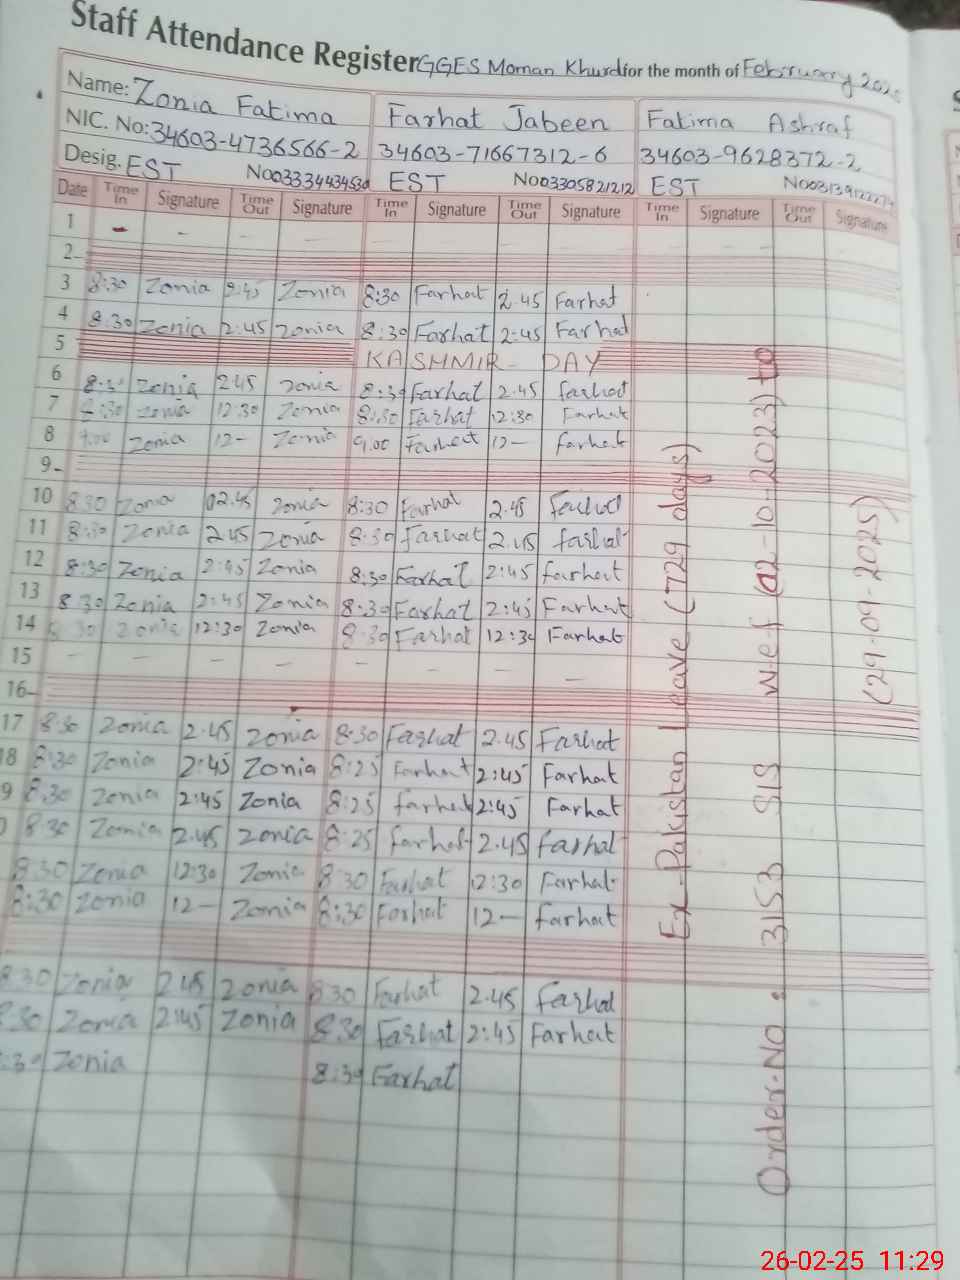 Staff Attendance Register GGES Moman Khurd for the month of February
Name: Zonia Fatima Farhat Jabeen Fatima Ashraf
NIC. No: 34603-4736566-2 34603-71667312-6 34603-9628372-2
Desig. EST EST No03305821212 EST
Date Time In Signature Time Out Signature Time In Signature Time Out Signature Time In Signature Time Out Signature
1 - - - -
2-
3 8:30 Zonia 2:45 Zonia 8:30 Farhat 2.45 Farhat
4 8:30 Zonia 2:45 Zonia 8:30 Farhat 2:45 Farhat
5 KASHMIR - DAY
6 Zonia 2:45 Zonia 8:30 Farhat 2.45 Farhat
7 8:30 Zonia 12:30 Zonia 8:30 Farhat 12:30 Farhat
8 9.00 Zonia 12- Zonia 9.00 Farhat 12- Farhat
9-
10 8:30 Zonia 02.45 Zonia 8:30 Farhat 2.45 Farhat
11 8:30 Zonia 2:45 Zonia 8:30 Farhat 2.45 Farhat
12 8:30 Zonia 2:45 Zonia 8:30 Farhat 2:45 Farhat
13 8:30 Zonia 2:45 Zonia 8:30 Farhat 2:45 Farhat
14 8:30 Zonia 12:30 Zonia 8:30 Farhat 12:30 Farhat
15 - - - - - - - -
16-
17 8:30 Zonia 2.45 Zonia 8:30 Farhat 2.45 Farhat
18 8:30 Zonia 2:45 Zonia 8:25 Farhat 2:45 Farhat
9 8:30 Zonia 2:45 Zonia 8:25 Farhat 2:45 Farhat
0 8:30 Zonia 2.45 Zonia 8:25 Farhat 2.45 Farhat
8:30 Zonia 12:30 Zonia 8:30 Farhat 12:30 Farhat
8:30 Zonia 12- Zonia 8:30 Farhat 12- Farhat
8:30 Zonia 2:45 Zonia 8:30 Farhat 2.45 Farhat
:30 Zonia 2:45 Zonia 8:30 Farhat 2:45 Farhat
:30 Zonia 8:30 Farhat
Ex-Pakistan Leave (729 days)
Order.No. 3153 SIS w.e.f (02-10-2023) to
(29-09-2025)
26-02-25 11:29